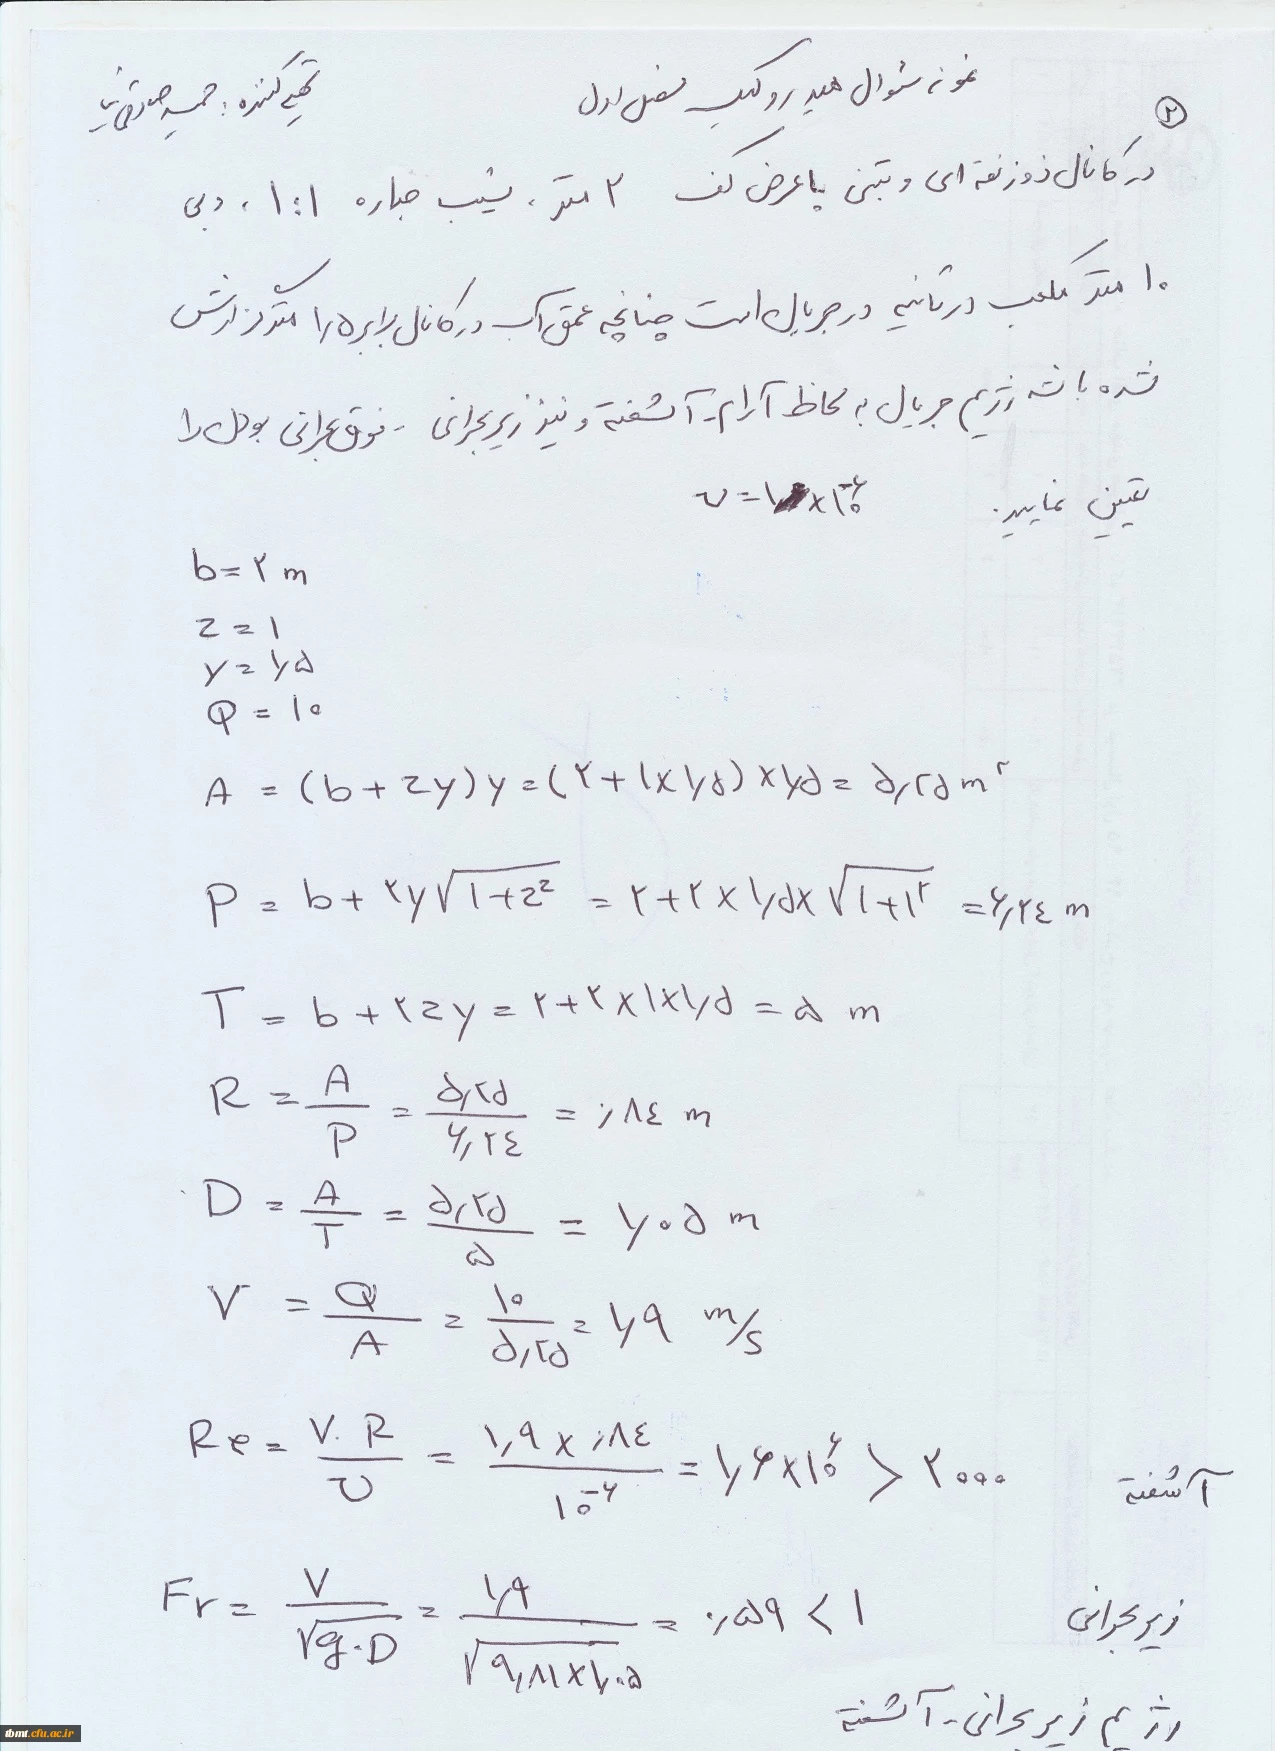 نمونه سئوال هیدرولیک فصل اول
تهیه کننده : حمید صادقی نیا
۳
در کانال ذوزنقه ای و بتنی با عرض کف ۲ متر ، شیب جداره ۱:۱ ، دبی
۱۰ متر مکعب در ثانیه در جریان است چنانچه عمق آب در کانال برابر ۱٫۵ متر گزارش
شده باشد رژیم جریان به لحاظ آرام - آشفته و نیز زیر بحرانی - فوق بحرانی بودن را
تعیین نمایید. υ = ۱ × ۱۰⁻⁶
b = ۲ m
z = ۱
y = ۱٫۵
Q = ۱۰
A = (b + zy) y = (۲ + ۱ × ۱٫۵) × ۱٫۵ = ۵٫۲۵ m²
P = b + ۲y √(۱ + z²) = ۲ + ۲ × ۱٫۵ × √(۱ + ۱²) = ۶٫۲۴ m
T = b + ۲zy = ۲ + ۲ × ۱ × ۱٫۵ = ۵ m
R = A/P = ۵٫۲۵/۶٫۲۴ = ۰٫۸۴ m
D = A/T = ۵٫۲۵/۵ = ۱٫۰۵ m
V = Q/A = ۱۰/۵٫۲۵ = ۱٫۹ m/s
Re = V.R/υ = ۱٫۹ × ۰٫۸۴/۱۰⁻⁶ = ۱٫۶ × ۱۰⁶ > ۲۰۰۰ آشفته
Fr = V/√(g.D) = ۱٫۹/√(۹٫۸۱ × ۱٫۰۵) = ۰٫۵۹ < ۱ زیر بحرانی
رژیم زیر بحرانی - آشفته
tbmt.cfu.ac.ir